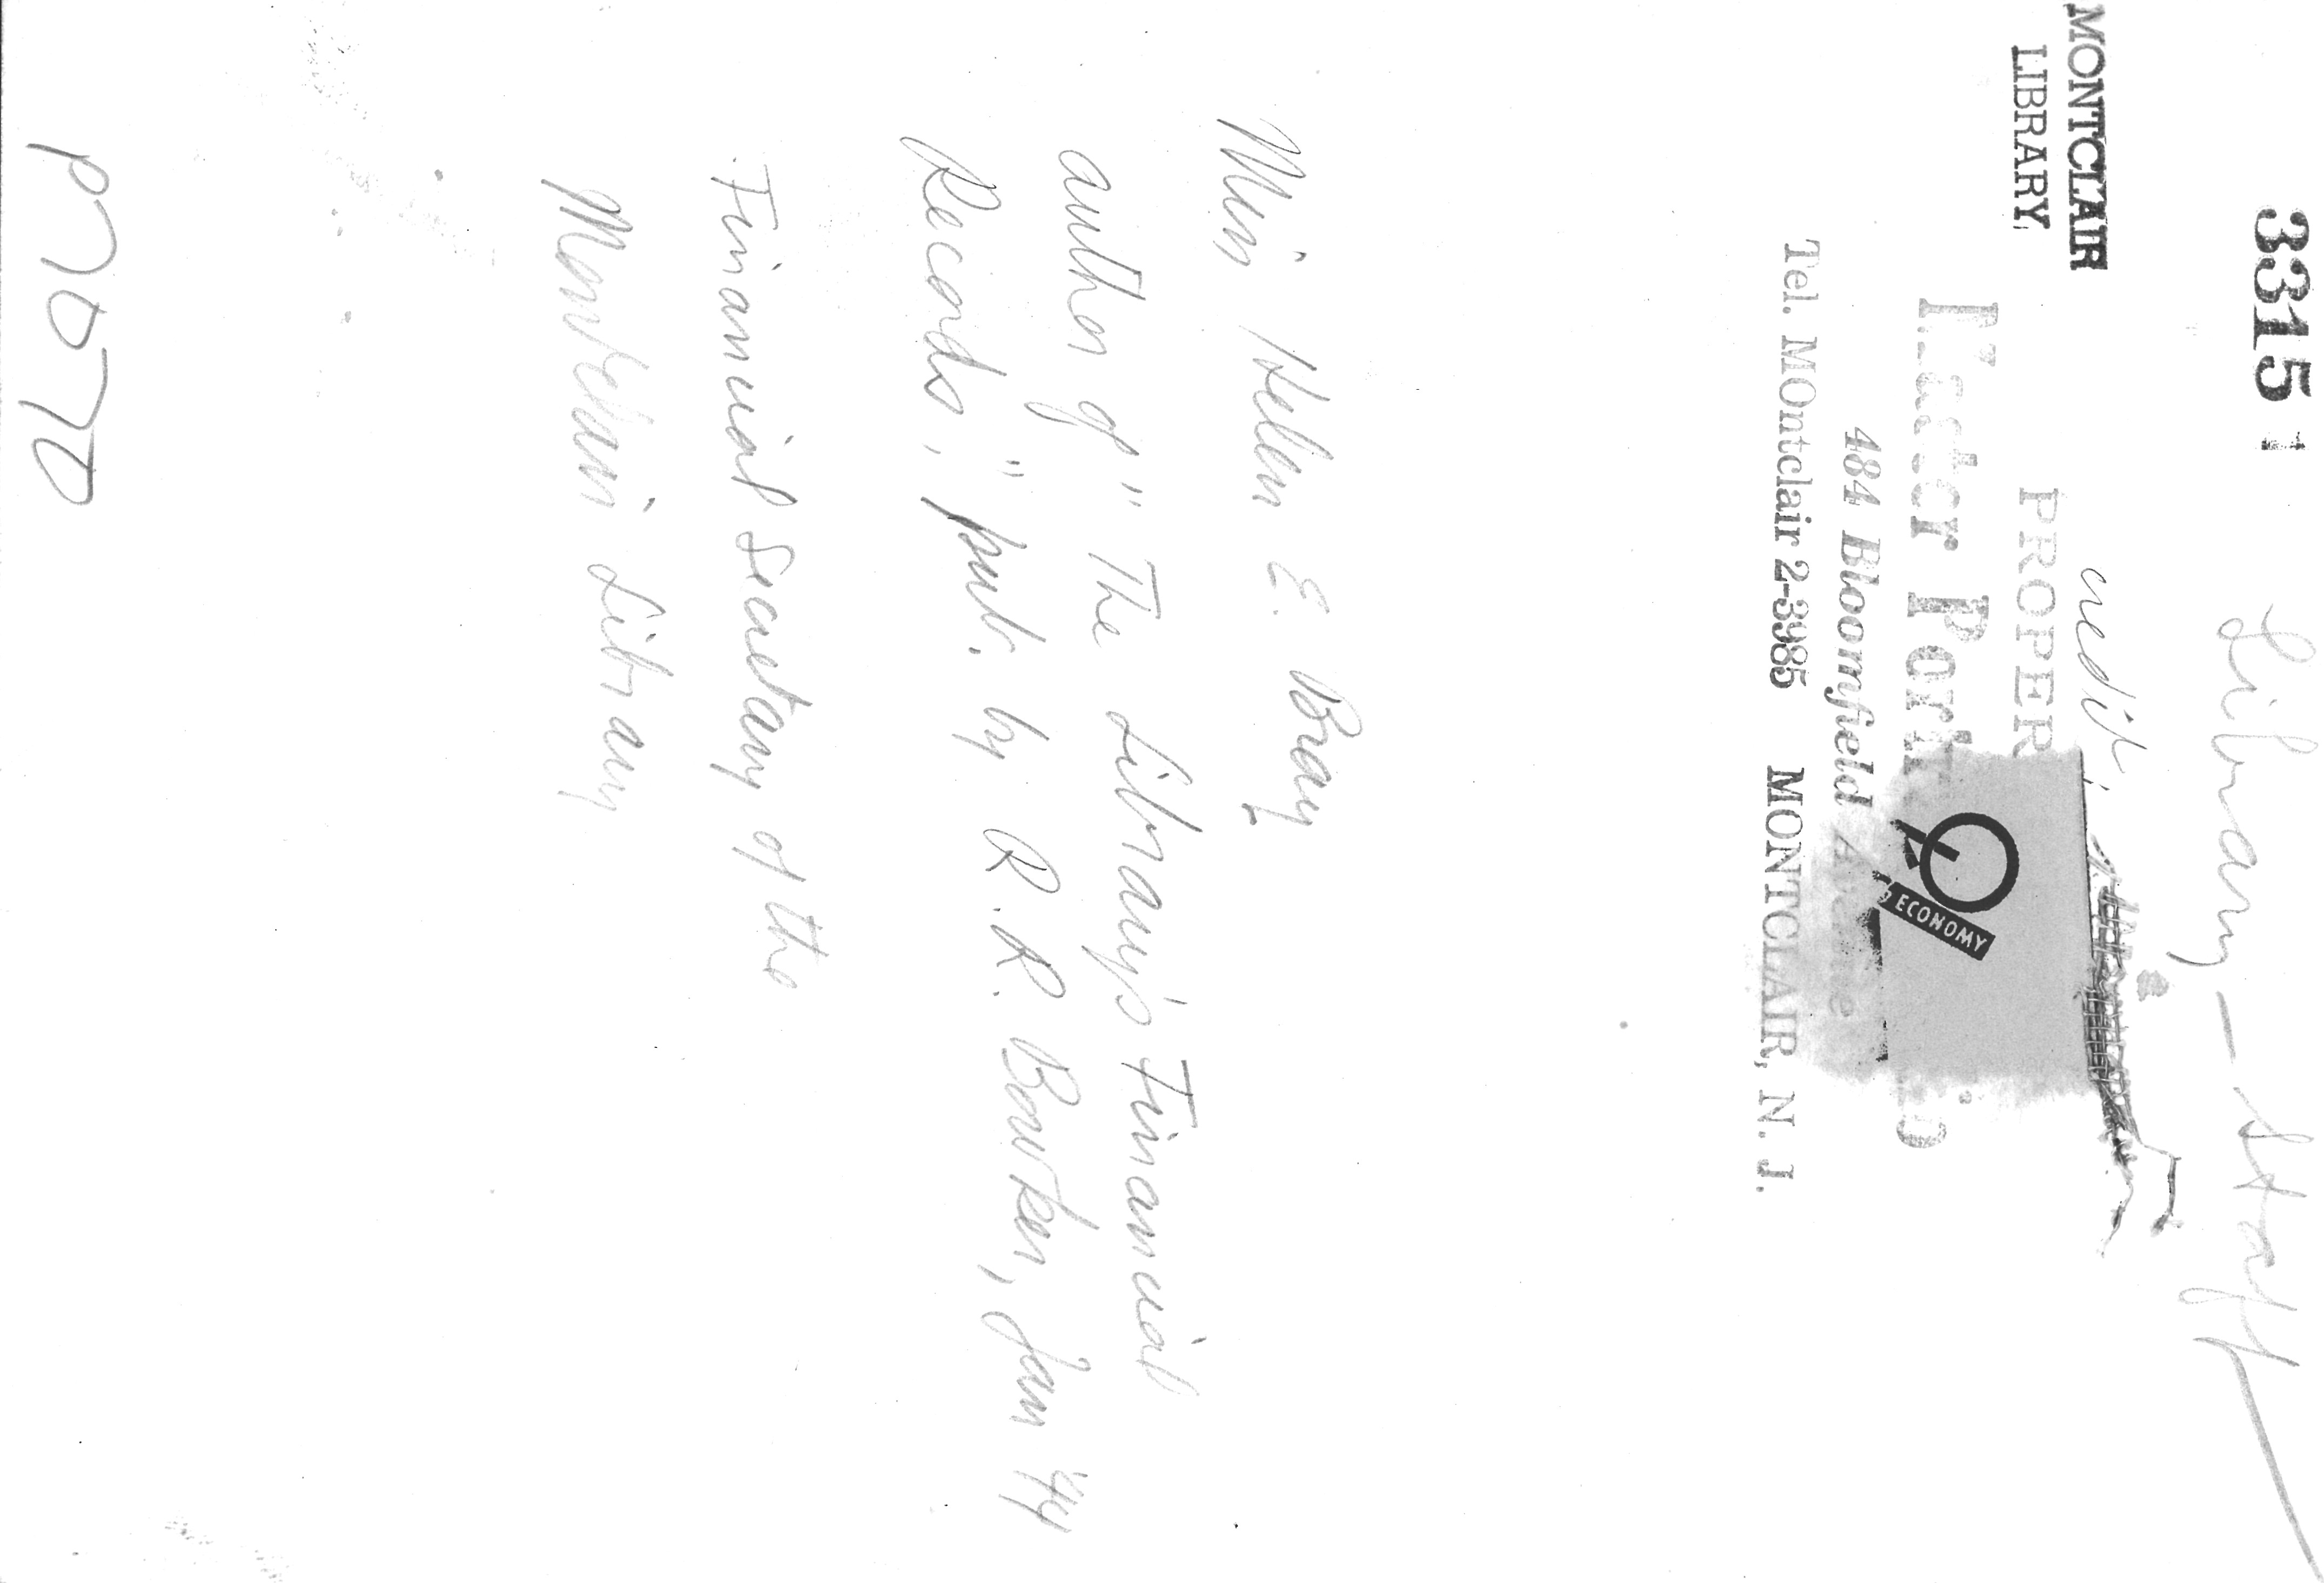 3315
Library - Staff
MONTCLAIR
LIBRARY,
credit:
PROPER
484 Bloomfield Avenue
Tel. MOntclair 2-3985 MONTCLAIR, N. J.
ECONOMY
Miss Helen E. Bray
author of "The Library's Financial
Records," pub. by R. R. Bowker, Jan 44
Financial Secretary of the
Montclair Library